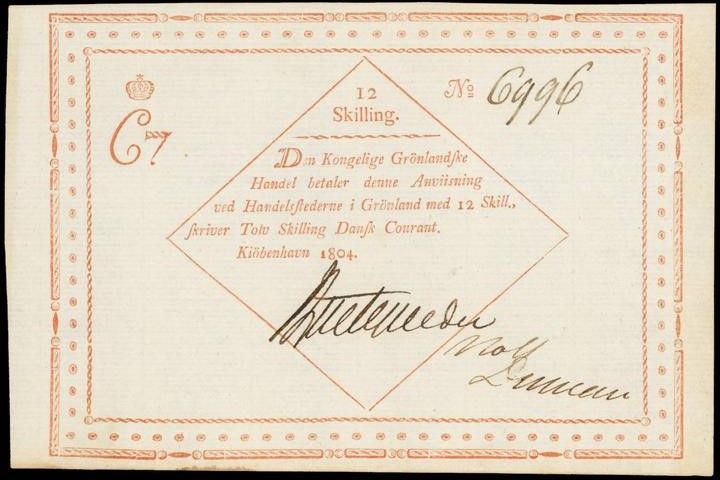 12
Skilling.
No 6996
C7
Den Kongelige Grönlandske
Handel betaler denne Anviisning
ved Handelsstederne i Grönland med 12 Skill.,
skriver Tolv Skilling Dansk Courant.
Kiöbenhavn 1804.